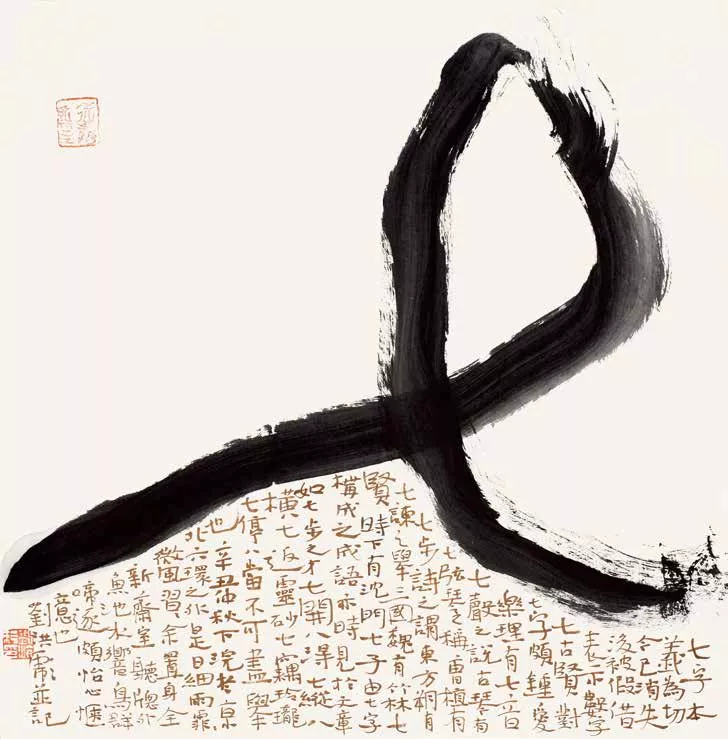 七
七字本
義為切
今已消失
後被假借
表示數字
七古賢對
七字頗鍾愛
樂理有七音
七聲之說古琴有
七弦琴之稱曹植有
七步詩之謂東方朔有
七諫之舉三國魏有竹林七
賢時下有沈門七子由七字
構成之成語亦時見於文章
如七步之才七開八得七縱八
橫七返靈砂七竅玲瓏
七停八當不可盡舉
也辛丑仲秋下浣於京
北六環之外是日細雨霏
微風習余置身全
新齋室聽牕外
魚池水響鳥群
啼逐頗怡心愜
意也
劉洪彪並記